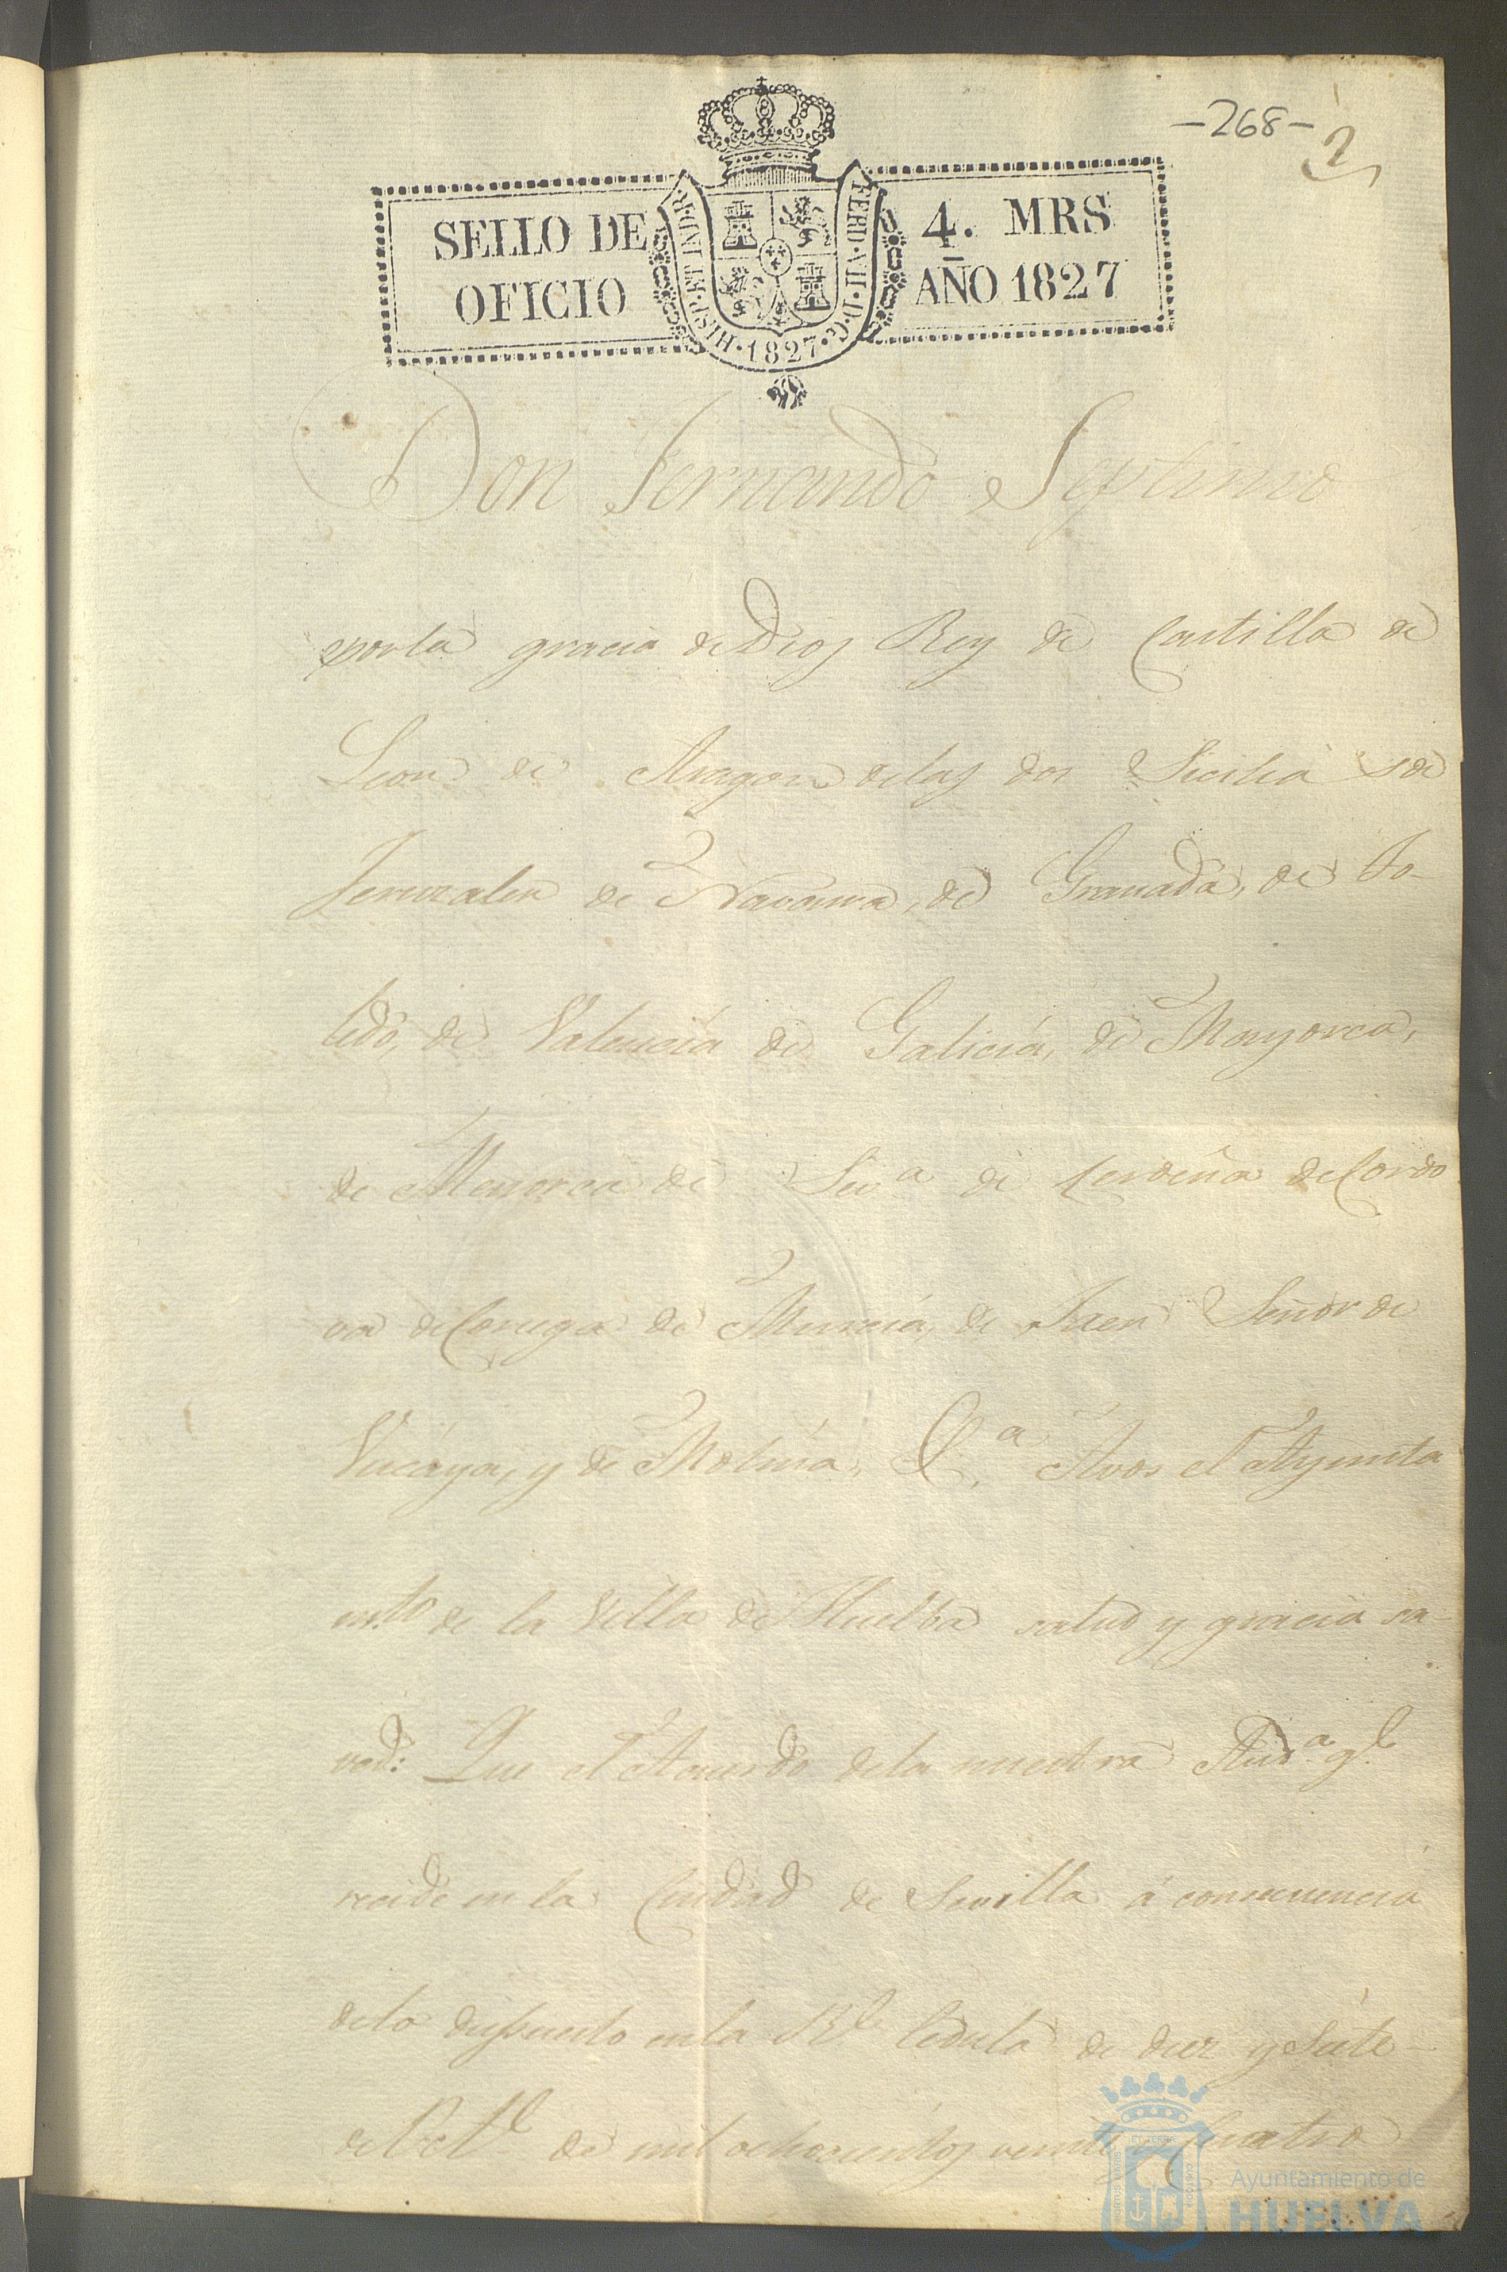 -268-
2
SELLO DE
OFICIO
HISP·ET IND·R
FERD·VII·D·G·
·1827·
4. MRS
AÑO 1827
Don Fernando Septimo
por la gracia de Dios Rey de Castilla de
Leon de Aragon delas dos Sicilia s de
Jeruzalen de Navarra, de Granada, de To-
ledo, de Valencia de Galicia, de Mayorca,
de Menorca de Sev.ª de Cerdeña de Cordo
va de Corsega de Murcia, de Jaen Señor de
Viscaya, y de Molina, &.ª Avos el Ayunta
m.to de la Villa de Huelba salud y gracia sa-
ved: Que el Acuerdo dela nuestra Aud.ª q.e
recide en la Ciudad de Sevilla á consecuencia
delo dispuesto en la R.l Cedula de diez y siete
de Oct.e de mil ochocientos veinte y cuatro
Ayuntamiento de
HUELVA